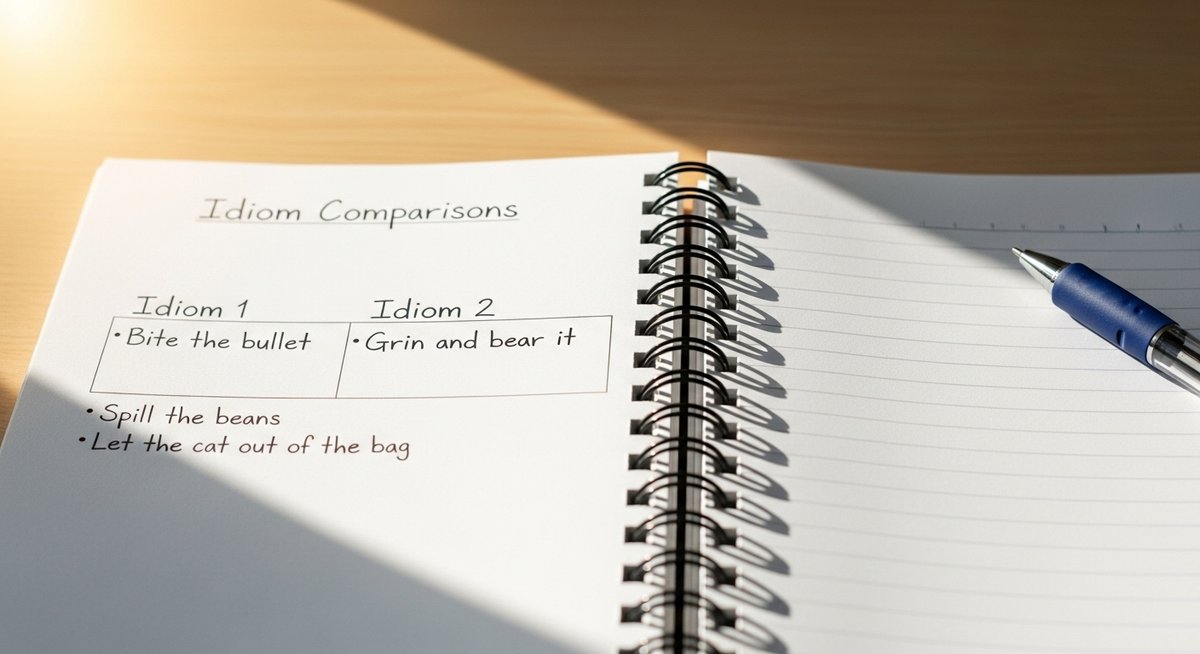 Idiom Comparisons
Idiom 1 Idiom 2
• Bite the bullet • Grin and bear it
• Spill the beans
• Let the cat out of the bag